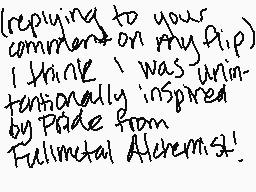 (replying to your
comment on my flip)
I think I was unin-
tentionally inspired
by Pride from
Fullmetal Alchemist!